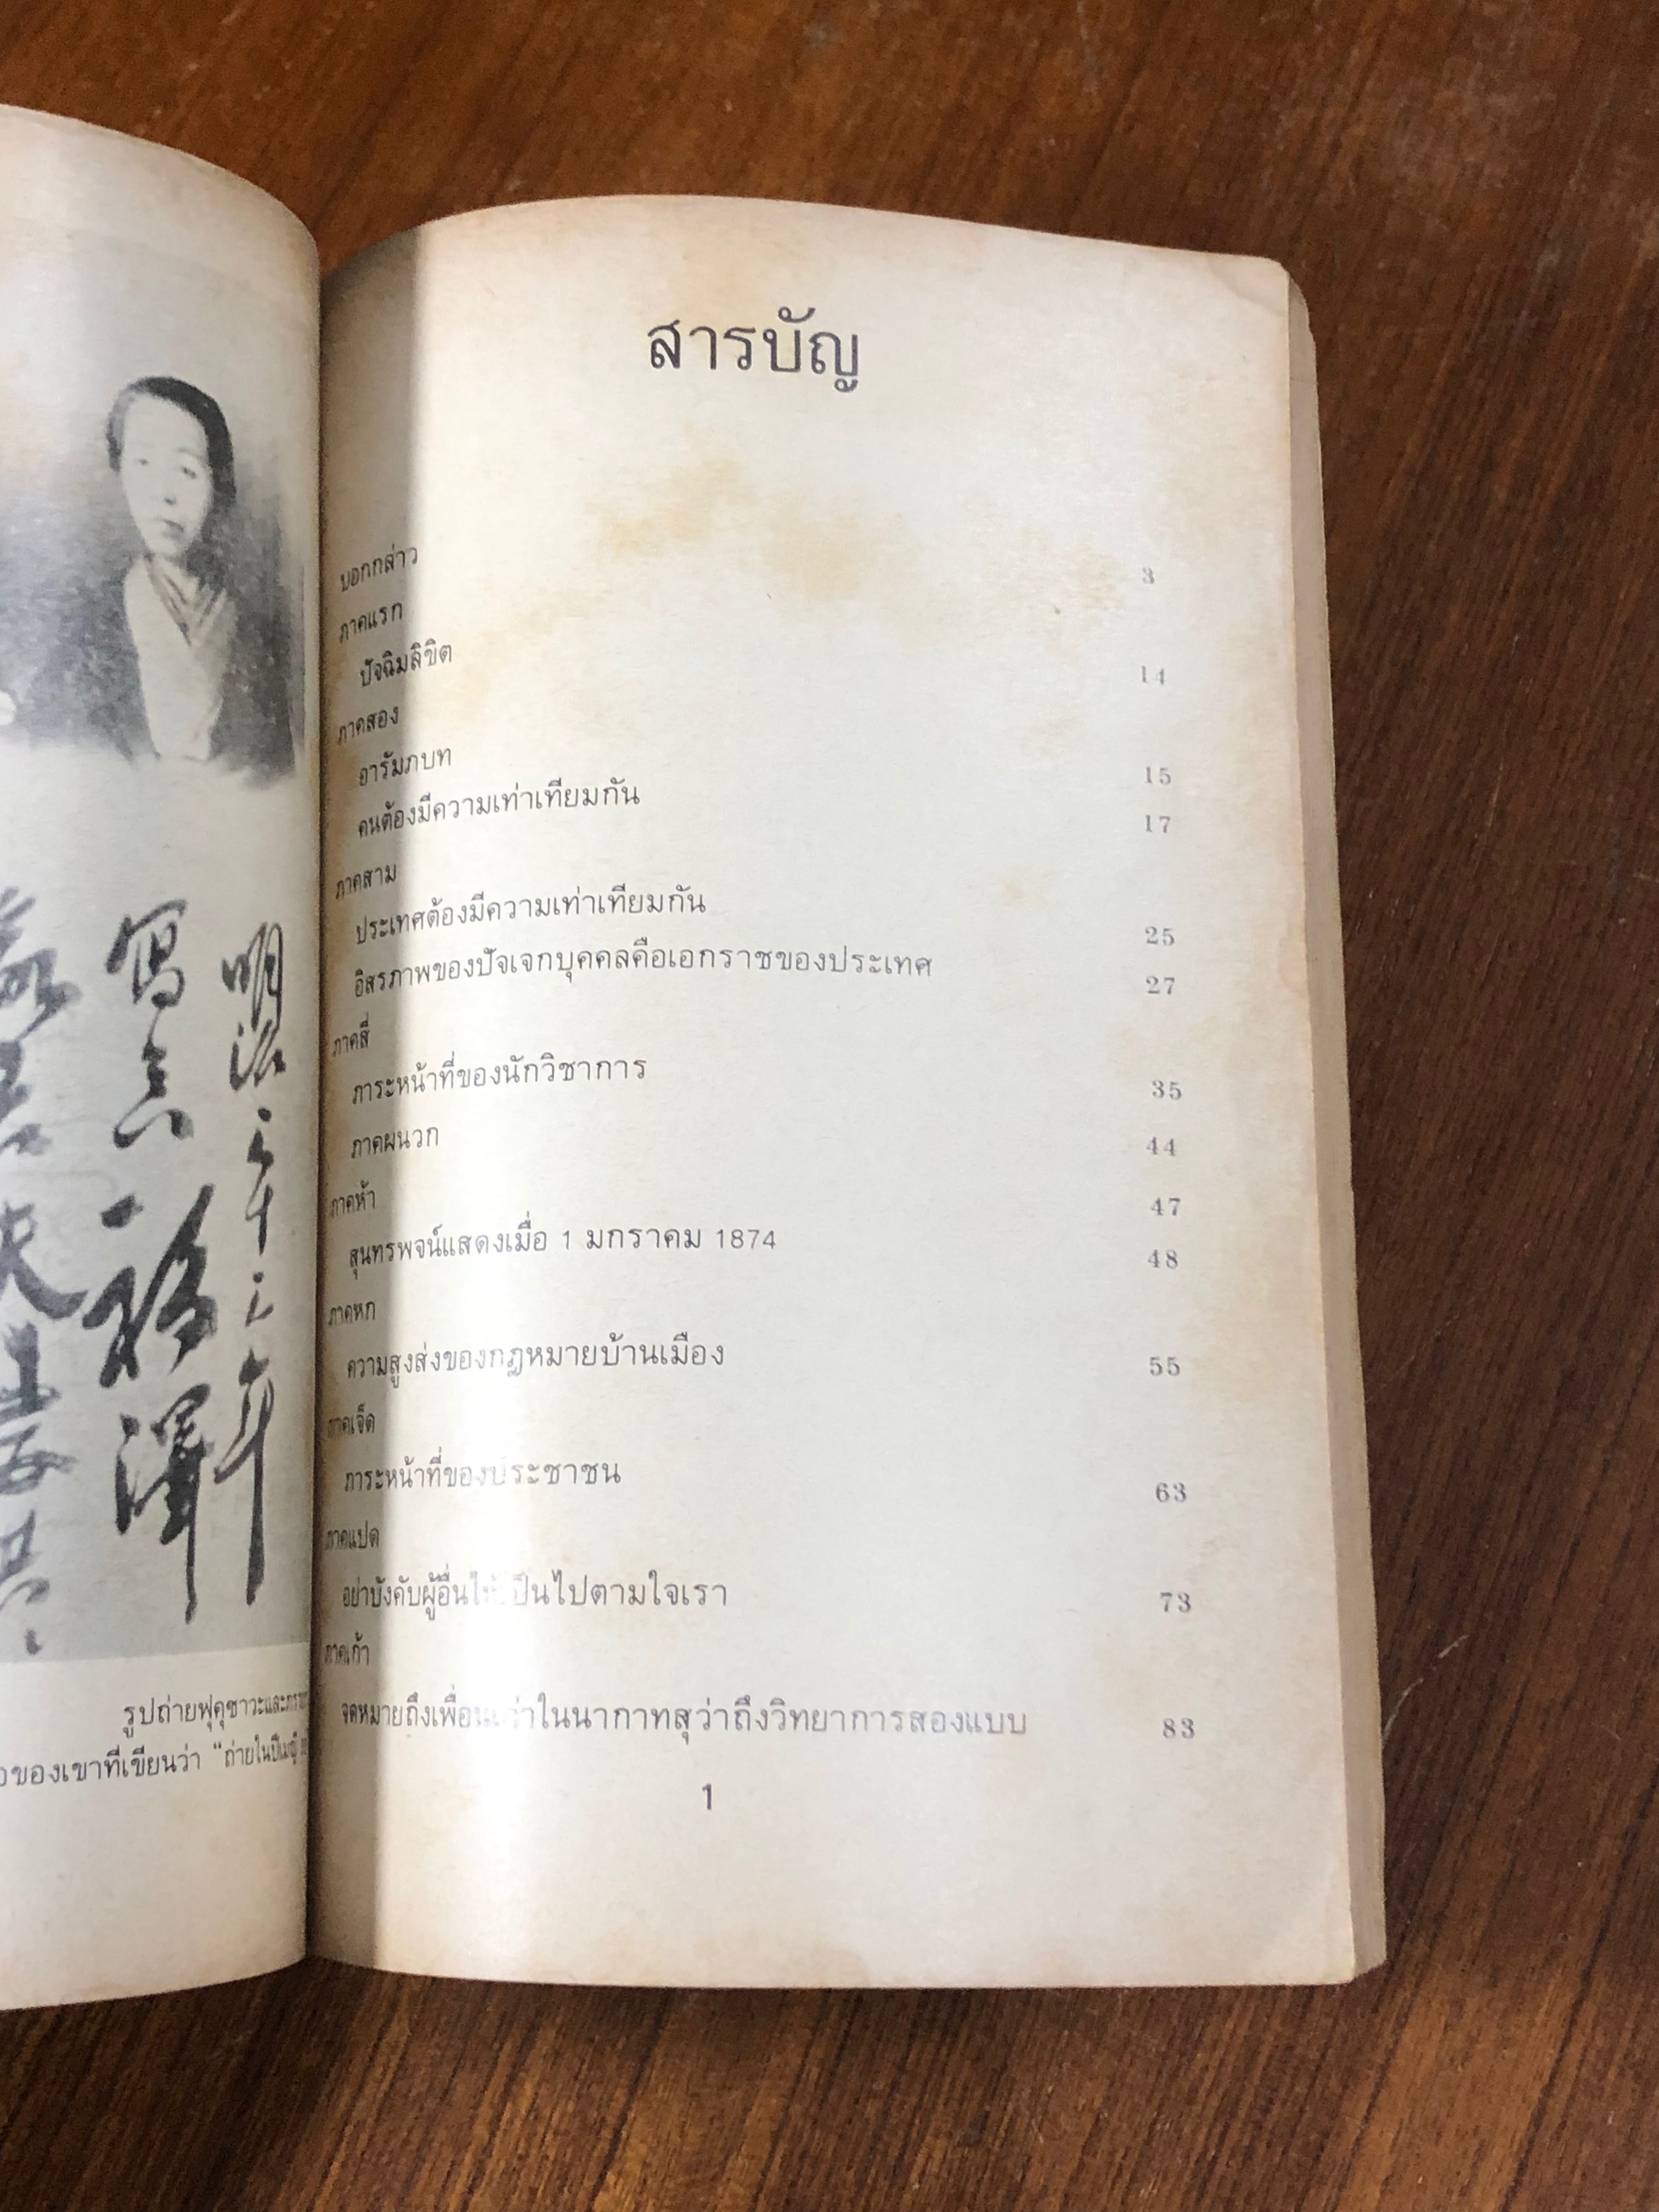 明治三十三年
写真 福澤
รูปถ่ายฟุคุซาวะและภรรยา
ของเขาที่เขียนว่า "ถ่ายในปีเมญี
สารบัญ
บอกกล่าว 3
ภาคแรก
ปัจฉิมลิขิต 14
ภาคสอง
อารัมภบท 15
คนต้องมีความเท่าเทียมกัน 17
ภาคสาม
ประเทศต้องมีความเท่าเทียมกัน 25
อิสรภาพของปัจเจกบุคคลคือเอกราชของประเทศ 27
ภาคสี่
ภาระหน้าที่ของนักวิชาการ 35
ภาคผนวก 44
ภาคห้า 47
สุนทรพจน์แสดงเมื่อ 1 มกราคม 1874 48
ภาคหก
ความสูงส่งของกฎหมายบ้านเมือง 55
ภาคเจ็ด
ภาระหน้าที่ของประชาชน 63
ภาคแปด
อย่าบังคับผู้อื่นให้เป็นไปตามใจเรา 73
ภาคเก้า
จดหมายถึงเพื่อนเก่าในนากาทสุว่าถึงวิทยาการสองแบบ 83
1